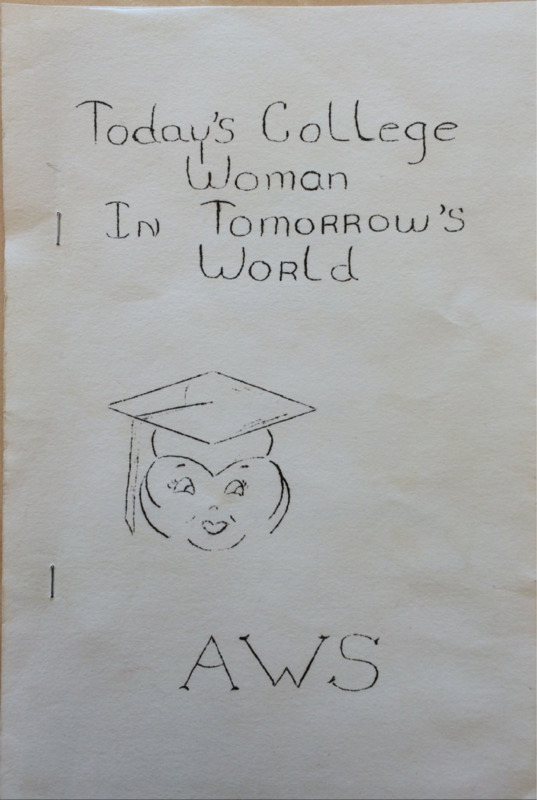 Today's College
Woman
In Tomorrow's
World
AWS